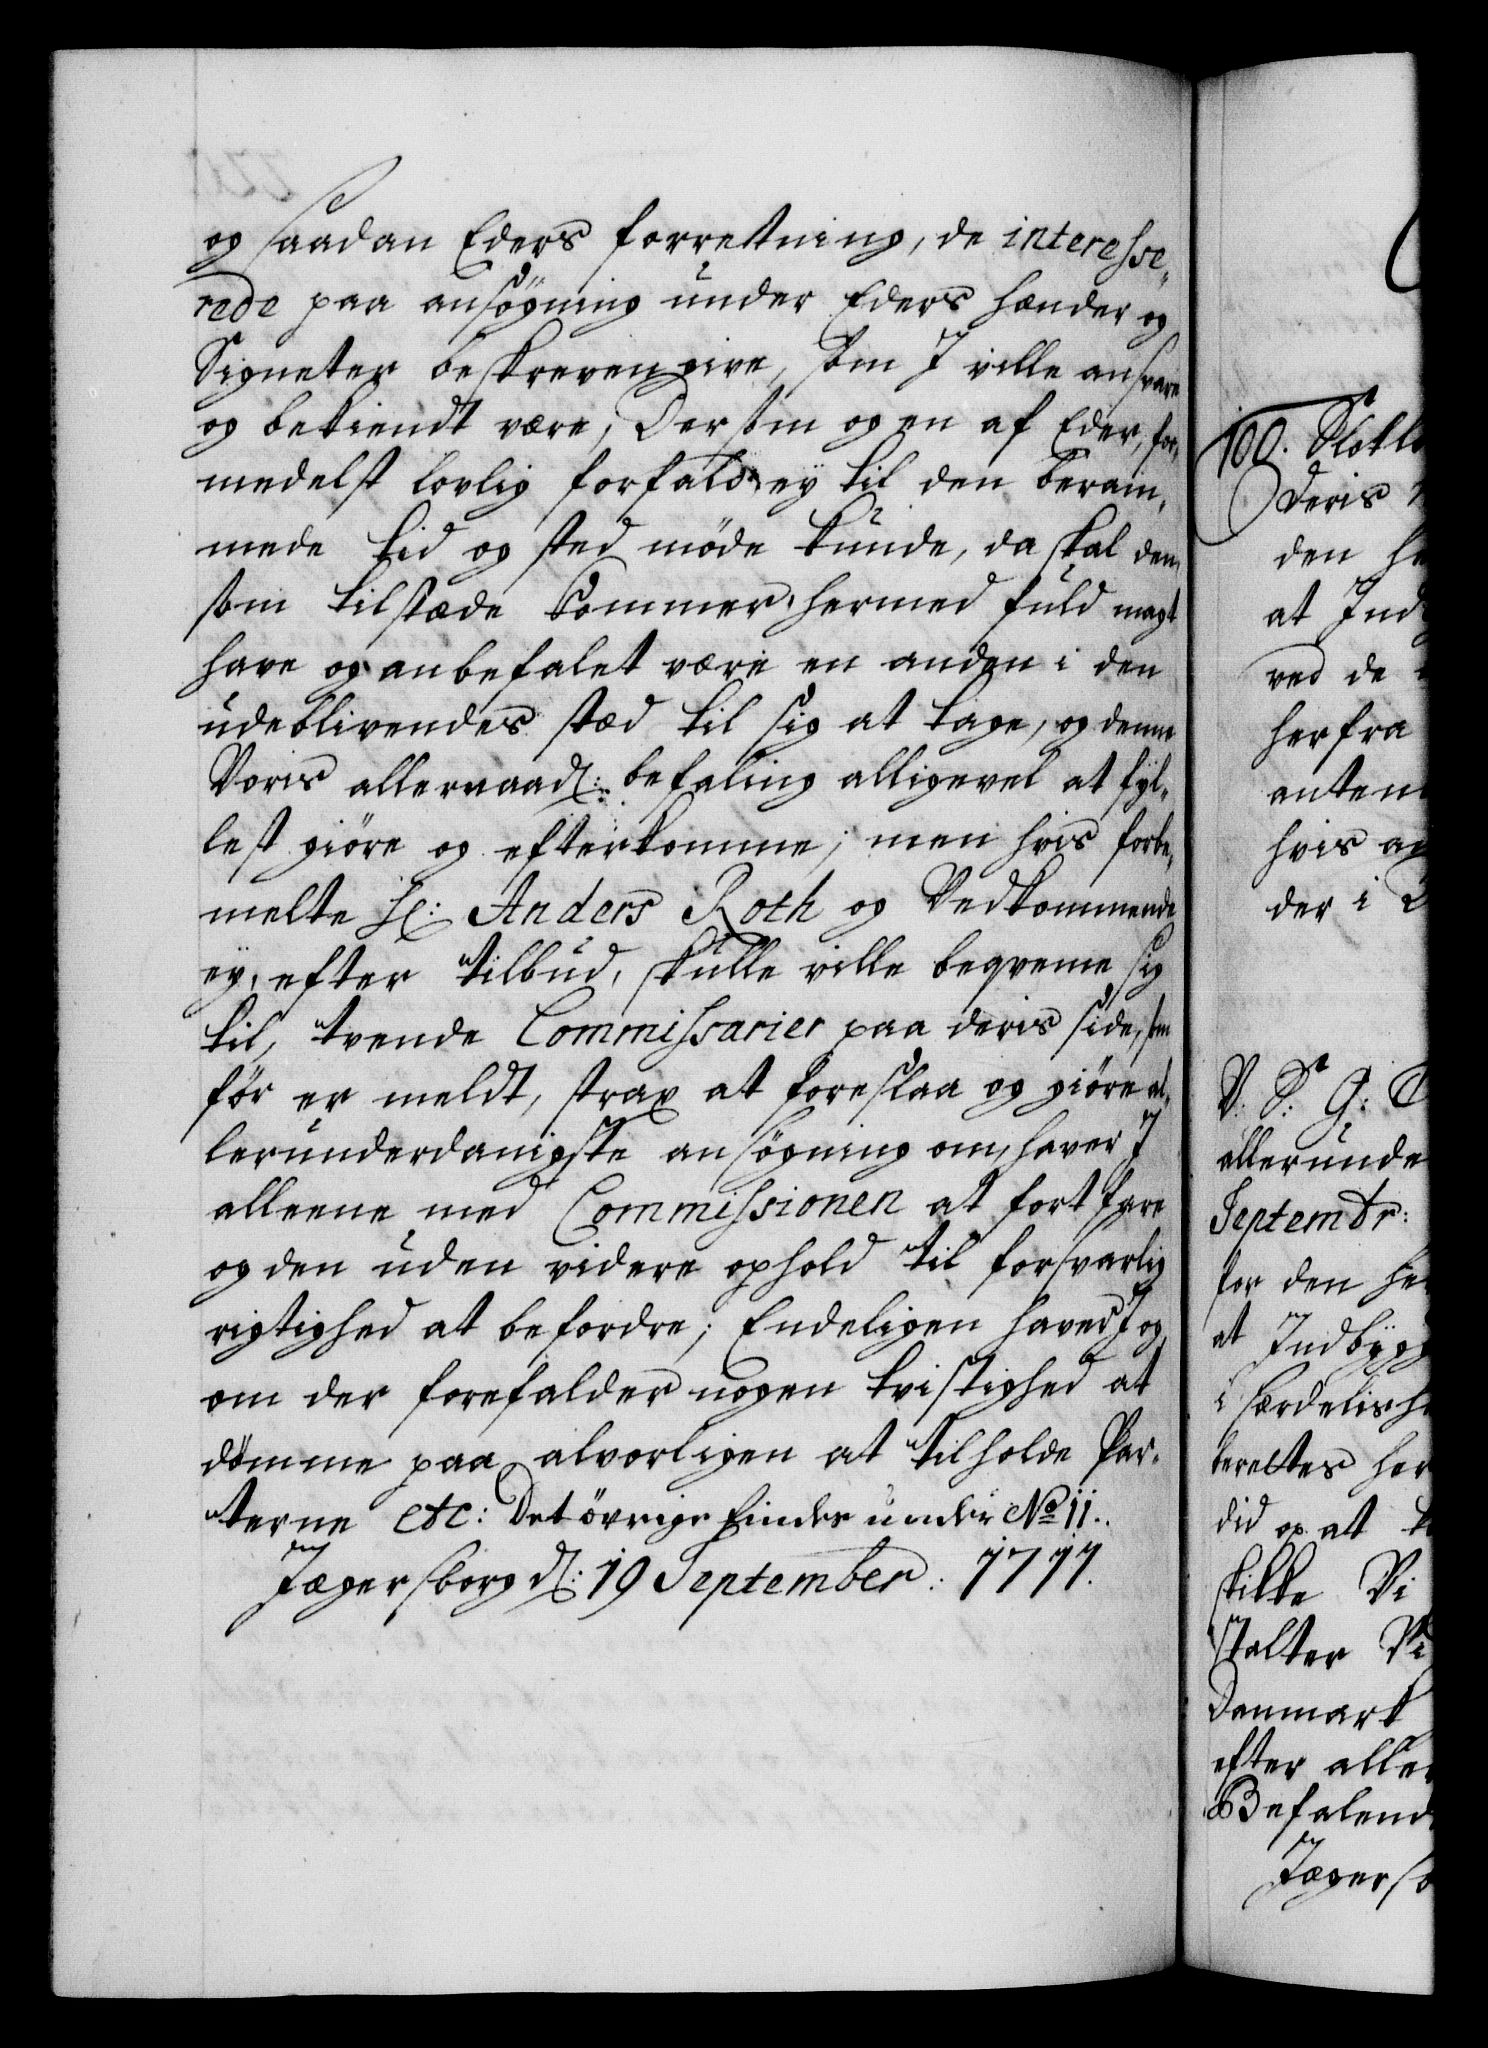 og saadan Eders forretning, de interesse„
rede paa ansøgning under Eders hænder og
Signeter beskreven give, som I ville ansvare
og bekiendt være; Dersom og en af Eder, for„
medelst lovlig forfald, ey til den beram„
mede tid og sted møde kunde, da skal den,
som tilstæde kommer, hermed fuld magt
have og anbefalet være en anden i den
udeblivendes stæd til sig at tage, og denne
Voris allernaadl: befaling alligevel at fyl„
lest giøre og efterkomme; men hvis forbe„
melte Hl: Anders Roth og Vedkommende
ey, efter tilbud, skulle ville beqveme sig
til, tvende Commissarier paa deris side, som
før er meldt, strax at foreslaa og giøre al„
lerunderdanigste ansøgning om, haver I
alleene med Commissionen at fortfare
og den uden videre ophold til forsvarlig
rigtighed at befordre; Endeligen haver I og
om der forefalder nogen tvistighed at
dømme paa alvorligen at tilholde Par„
terne etc: Det øvrige findes under No 11.
Jægersborg dl: 19 September: 1711.
100. Slotts
Deris
den
at Ind
ved de
herfra
anten
hvis
der i
V: S: G:
allerunde
Septembr:
for den
at Indbygg
i særdelish
berettes her
did op at
skikke Vi
stalter Vi
Danmark
efter aller
Befalend
Jægersb